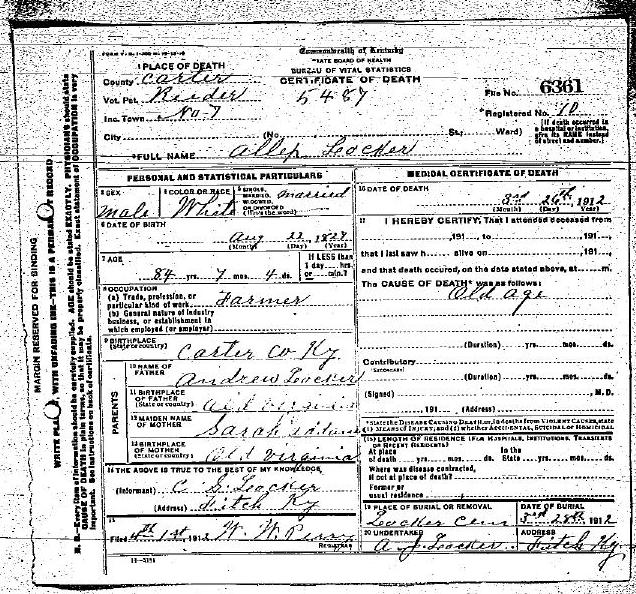 Commonwealth of Kentucky
STATE BOARD OF HEALTH
BUREAU OF VITAL STATISTICS
CERTIFICATE OF DEATH
1 PLACE OF DEATH
County Carter
Vot. Pct. Reeder 5487
Inc. Town No 7
City (No. St.; Ward)
File No. 6361
*Registered No. 10
[If death occurred in a hospital or institution, give its NAME instead of street and number.]
*FULL NAME Allen Locker
PERSONAL AND STATISTICAL PARTICULARS
3 SEX Male
4 COLOR OR RACE White
5 SINGLE, MARRIED, WIDOWED, OR DIVORCED (Write the word) Married
6 DATE OF BIRTH
Aug 22, 1827
(Month) (Day) (Year)
7 AGE
84 yrs. 7 mos. 4 ds.
If LESS than 1 day, hrs. or min.?
8 OCCUPATION
(a) Trade, profession, or particular kind of work Farmer
(b) General nature of industry business, or establishment in which employed (or employer)
9 BIRTHPLACE
(State or country) Carter Co Ky
PARENTS
10 NAME OF FATHER Andrew Locker
11 BIRTHPLACE OF FATHER
(State or country)
12 MAIDEN NAME OF MOTHER Sarah
13 BIRTHPLACE OF MOTHER
(State or country) Old Virginia
14 THE ABOVE IS TRUE TO THE BEST OF MY KNOWLEDGE
(Informant) C. G. Locker
(Address) Fitch Ky
15
Filed 4th 1st, 1912 W. W.
REGISTRAR
11-3184
MEDICAL CERTIFICATE OF DEATH
16 DATE OF DEATH
3rd 26th 1912
(Month) (Day) (Year)
17 I HEREBY CERTIFY, That I attended deceased from
, 191 , to , 191 ,
that I last saw h alive on , 191 ,
and that death occured, on the date stated above, at m.
The CAUSE OF DEATH* was as follows:
Old Age
(Duration) yrs. mos. ds.
Contributory
(SECONDARY)
(Duration) yrs. mos. ds.
(Signed) , M.D.
, 191 (Address)
*State the Disease Causing Death, or, in deaths from Violent Causes, state (1) Means of Injury; and (2) whether Accidental, Suicidal or Homicidal
18 LENGTH OF RESIDENCE (For Hospitals, Institutions, Transients or Recent Residents)
At place of death yrs. mos. ds. In the State yrs. mos. ds.
Where was disease contracted,
if not at place of death?
Former or
usual residence
19 PLACE OF BURIAL OR REMOVAL
Locker Cem
DATE OF BURIAL
3rd 28th 1912
20 UNDERTAKER
A. J. Locker
ADDRESS
Fitch Ky.
MARGIN RESERVED FOR BINDING
WRITE PLAINLY, WITH UNFADING INK—THIS IS A PERMANENT RECORD
N. B.—Every item of information should be carefully supplied. AGE should be stated EXACTLY. PHYSICIANS should state
CAUSE OF DEATH in plain terms, so that it may be properly classified. Exact statement of OCCUPATION is very
important. See instructions on back of certificate.